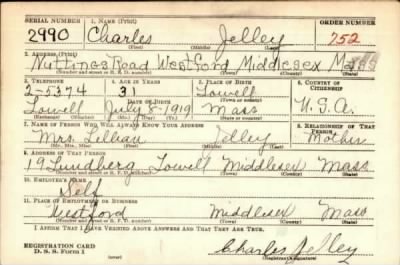 SERIAL NUMBER 1. NAME (Print) ORDER NUMBER
2990 Charles Jelley 752
(First) (Middle) (Last)
2. ADDRESS (Print)
Nuttings Road Westford Middlesex Mass
(Number and street or R. F. D. number) (Town) (County) (State)
3. TELEPHONE 4. AGE IN YEARS 5. PLACE OF BIRTH 6. COUNTRY OF CITIZENSHIP
2-5374 31 Lowell
DATE OF BIRTH (Town or county) U.S.A.
Lowell July 8-1919 Mass
7. NAME OF PERSON WHO WILL ALWAYS KNOW YOUR ADDRESS 8. RELATIONSHIP OF THAT PERSON
Mrs. Lillian Jelley Mother
(Mr., Mrs., Miss) (First) (Middle) (Last)
9. ADDRESS OF THAT PERSON
19 Lundberg Lowell Middlesex Mass
(Number and street or R. F. D. number) (Town) (County) (State)
10. EMPLOYER'S NAME
Self
11. PLACE OF EMPLOYMENT OR BUSINESS
Westford Middlesex Mass
(Number and street or R. F. D. number) (Town) (County) (State)
I AFFIRM THAT I HAVE VERIFIED ABOVE ANSWERS AND THAT THEY ARE TRUE.
REGISTRATION CARD Charles Jelley
D. S. S. Form 1 (Registrant's signature)